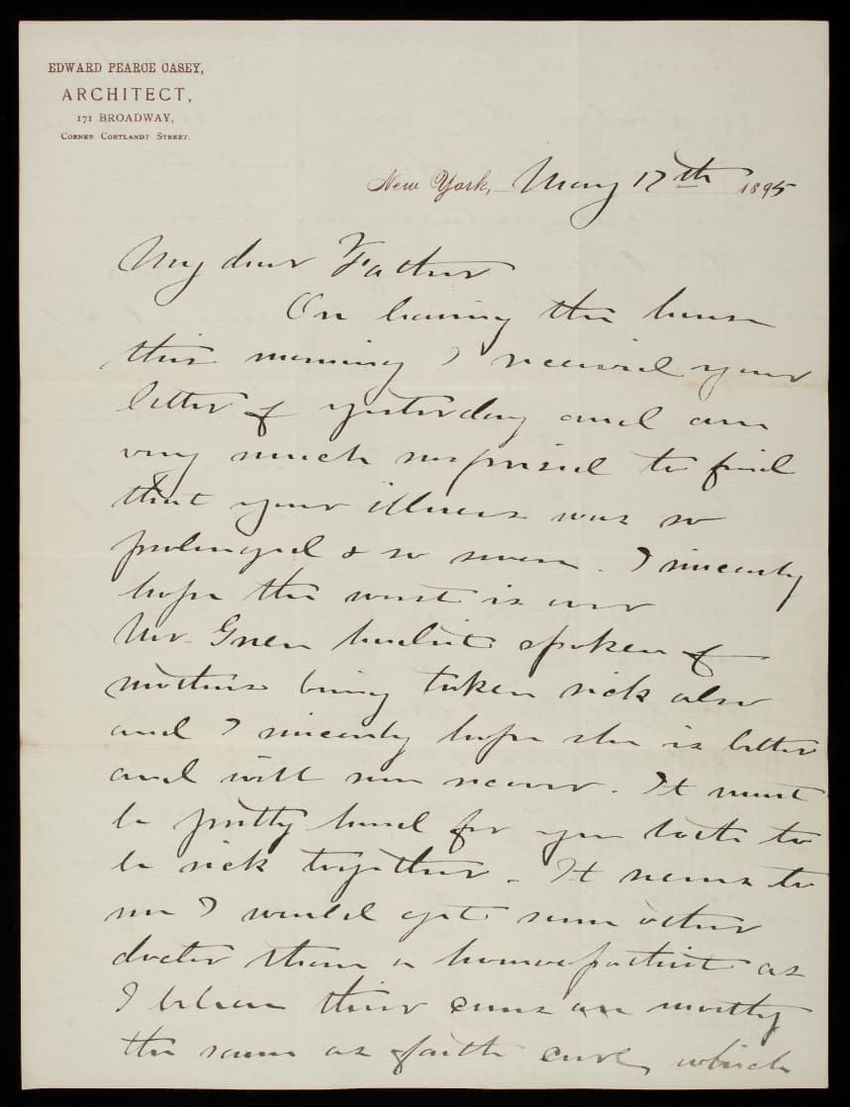 EDWARD PEARCE CASEY,
ARCHITECT,
171 BROADWAY,
CORNER CORTLANDT STREET.
New York, May 17th 1895
My dear Father
On leaving the house
this morning I received your
letter of yesterday and am
very much surprised to find
that your illness was so
prolonged & so severe. I sincerely
hope the worst is over
Mr. Green hadnt spoken of
mothers being taken sick also
and I sincerely hope she is better
and will soon recover. It must
be pretty hard for you both to
be sick together. It seems to
me I would get some other
doctor than a homoepathist as
I believe their cures are mostly
the same as faith cure, which